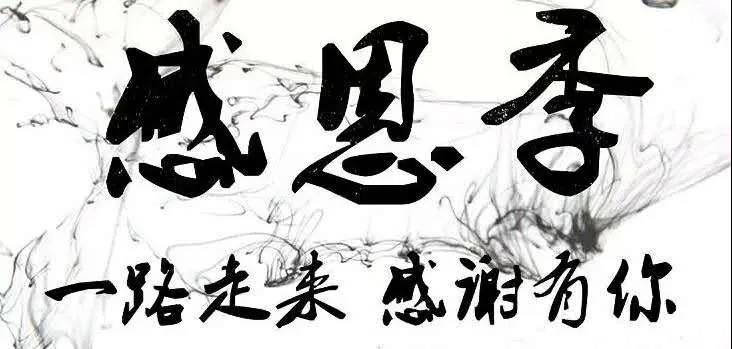 感恩季
一路走来 感谢有你